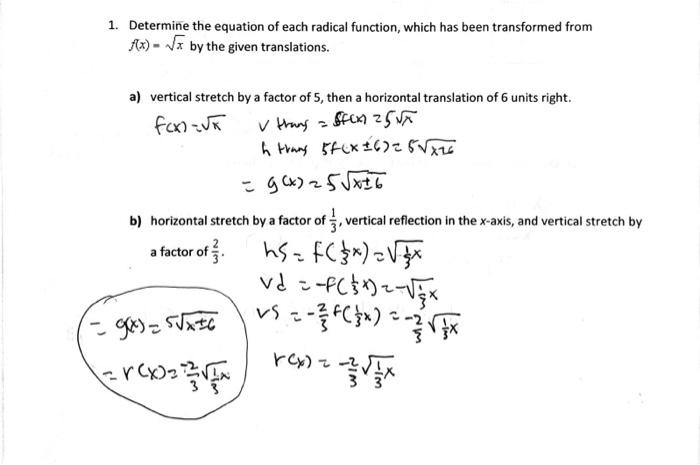 1. Determine the equation of each radical function, which has been transformed from
f(x) = √x by the given translations.
a) vertical stretch by a factor of 5, then a horizontal translation of 6 units right.
f(x) = √x v trans = 5f(x) = 5√x
h trans 5f(x ± 6) = 5√x±6
= g(x) = 5√x±6
b) horizontal stretch by a factor of 1/3, vertical reflection in the x-axis, and vertical stretch by
a factor of 2/3.
hS = f(1/3x) = √1/3x
vd = -f(1/3x) = -√1/3x
vs = -2/3 f(1/3x) = -2/3 √1/3x
r(x) = -2/3 √1/3x
= g(x) = 5√x±6
= r(x) = -2/3 √1/3x